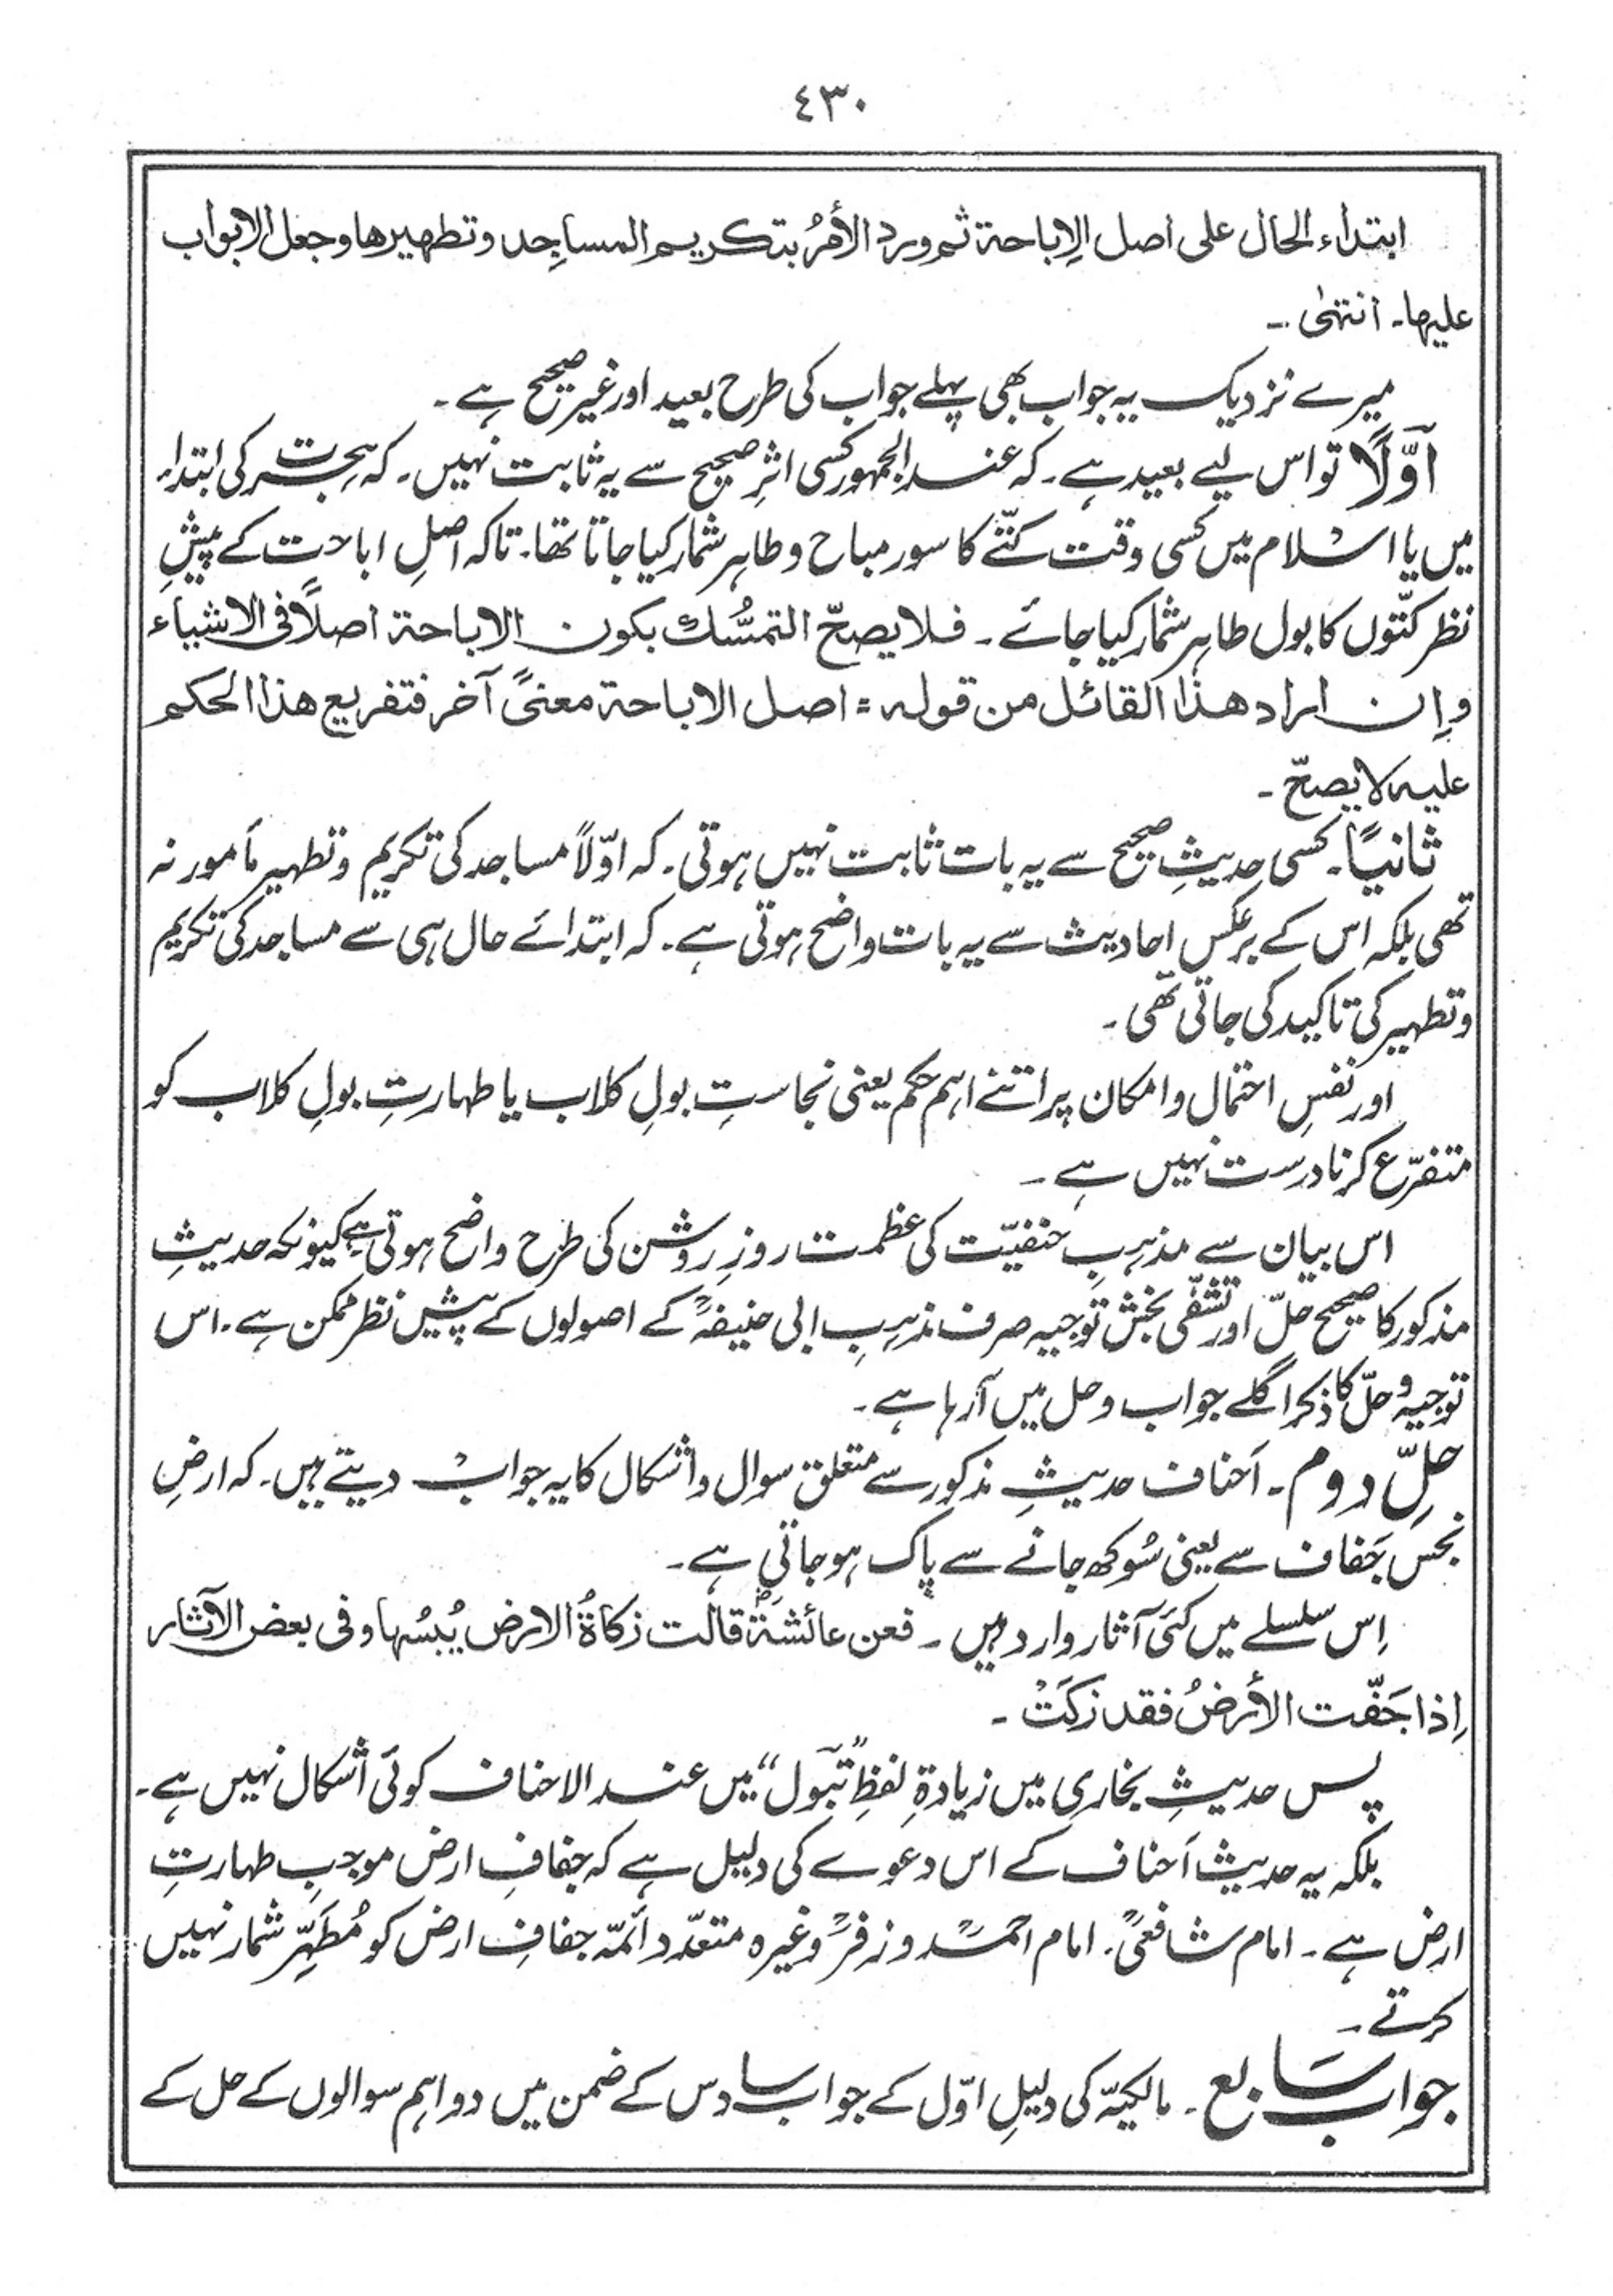 ٤٣٠
ابتداء الحال على اصل الإباحة ثم ورد الأمرُ بتكريم المساجِد وتطهيرها وجعل الابواب
عليها۔ انتہٰی ۔
میرے نزدیک یہ جواب بھی پہلے جواب کی طرح بعید اور غیر صحیح ہے ۔
اَوّلًا تو اس لیے بعید ہے ۔ کہ عند الجمہور کسی اثرِ صحیح سے یہ ثابت نہیں ۔ کہ ہجرت کی ابتداء
میں یا اسلام میں کسی وقت کتّے کا سور مباح و طاہر شمار کیا جاتا تھا۔ تاکہ اصلِ اباحت کے پیشِ
نظر کتّوں کا بول طاہر شمار کیا جائے ۔ فلا یصحّ التمسُّك بكون الاباحة اصلًا فی الاشیاء
وإن اراد هذا القائل من قوله = اصل الاباحة معنیً آخر فتفریع هذا الحكم
علیه لا یصحّ ۔
ثانیًا ۔ کسی حدیثِ صحیح سے یہ بات ثابت نہیں ہوتی ۔ کہ اوّلًا مساجد کی تکریم و تطہیر مأمور نہ
تھی بلکہ اس کے برعکس احادیث سے یہ بات واضح ہوتی ہے ۔ کہ ابتدائے حال ہی سے مساجد کی تکریم
و تطہیر کی تاکید کی جاتی تھی ۔
اور نفسِ احتمال و امکان پر اتنے اہم حکم یعنی نجاستِ بولِ کلاب یا طہارتِ بولِ کلاب کو
متفرّع کرنا درست نہیں ہے ۔
اس بیان سے مذہبِ حنفیّت کی عظمت روزِ روشن کی طرح واضح ہوتی ہے کیونکہ حدیثِ
مذکور کا صحیح حلّ اور تشفّی بخش توجیہ صرف مذہبِ ابی حنیفہؒ کے اصولوں کے پیشِ نظر ممکن ہے ۔ اس
توجیہ و حلّ کا ذکر اگلے جواب و حل میں آرہا ہے ۔
حلِّ دوم ۔ اَحناف حدیثِ مذکور سے متعلق سوال و اشکال کا یہ جواب دیتے ہیں ۔ کہ ارضِ
نجس جَفاف سے یعنی سُوکھ جانے سے پاک ہو جاتی ہے ۔
اِس سلسلے میں کئی آثار وارد ہیں ۔ فعن عائشةؓ قالت زكاةُ الارض یُبسُها وفی بعض الآثار
اِذا جَفّت الأرضُ فقد زكَتْ ۔
پس حدیثِ بخاری میں زیادۃِ لفظِ ”تَبَول“ میں عند الاحناف کوئی اشکال نہیں ہے ۔
بلکہ یہ حدیث اَحناف کے اس دعوے کی دلیل ہے کہ جفافِ ارض موجبِ طہارتِ
ارض ہے ۔ امام شافعیؒ ۔ امام احمدؒ و زفرؒ وغیرہ متعدّد ائمّہ جفافِ ارض کو مُطَہِّر شمار نہیں
کرتے ۔
جواب سابع ۔ مالکیّہ کی دلیلِ اوّل کے جواب سادس کے ضمن میں دو اہم سوالوں کے حل کے